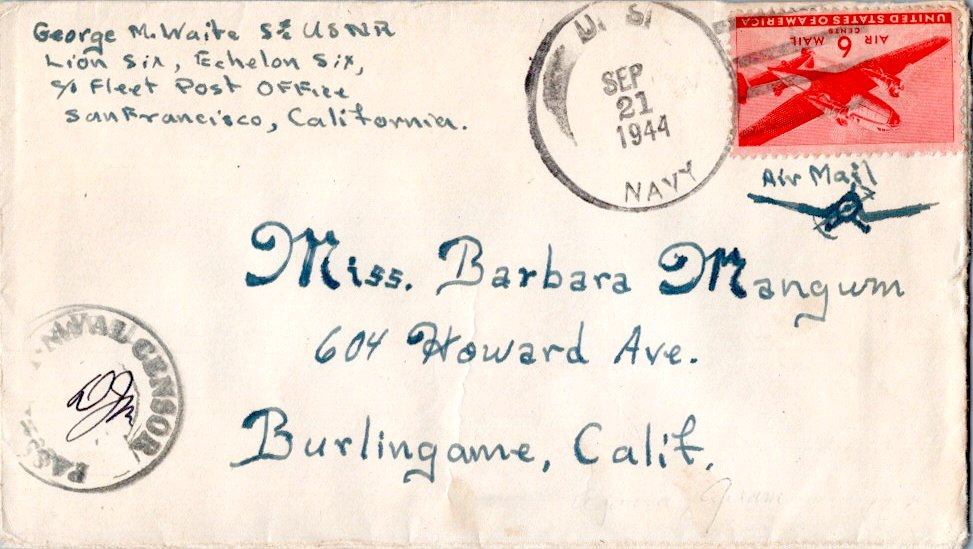 George M. Waite S2c USNR
Lion Six, Echelon Six,
c/o Fleet Post Office
San Francisco, California.
U. S.
SEP
21
1944
NAVY
UNITED STATES OF AMERICA
6
CENTS
AIR MAIL
Air Mail
Miss. Barbara Mangum
604 Howard Ave.
Burlingame, Calif.
NAVAL CENSOR